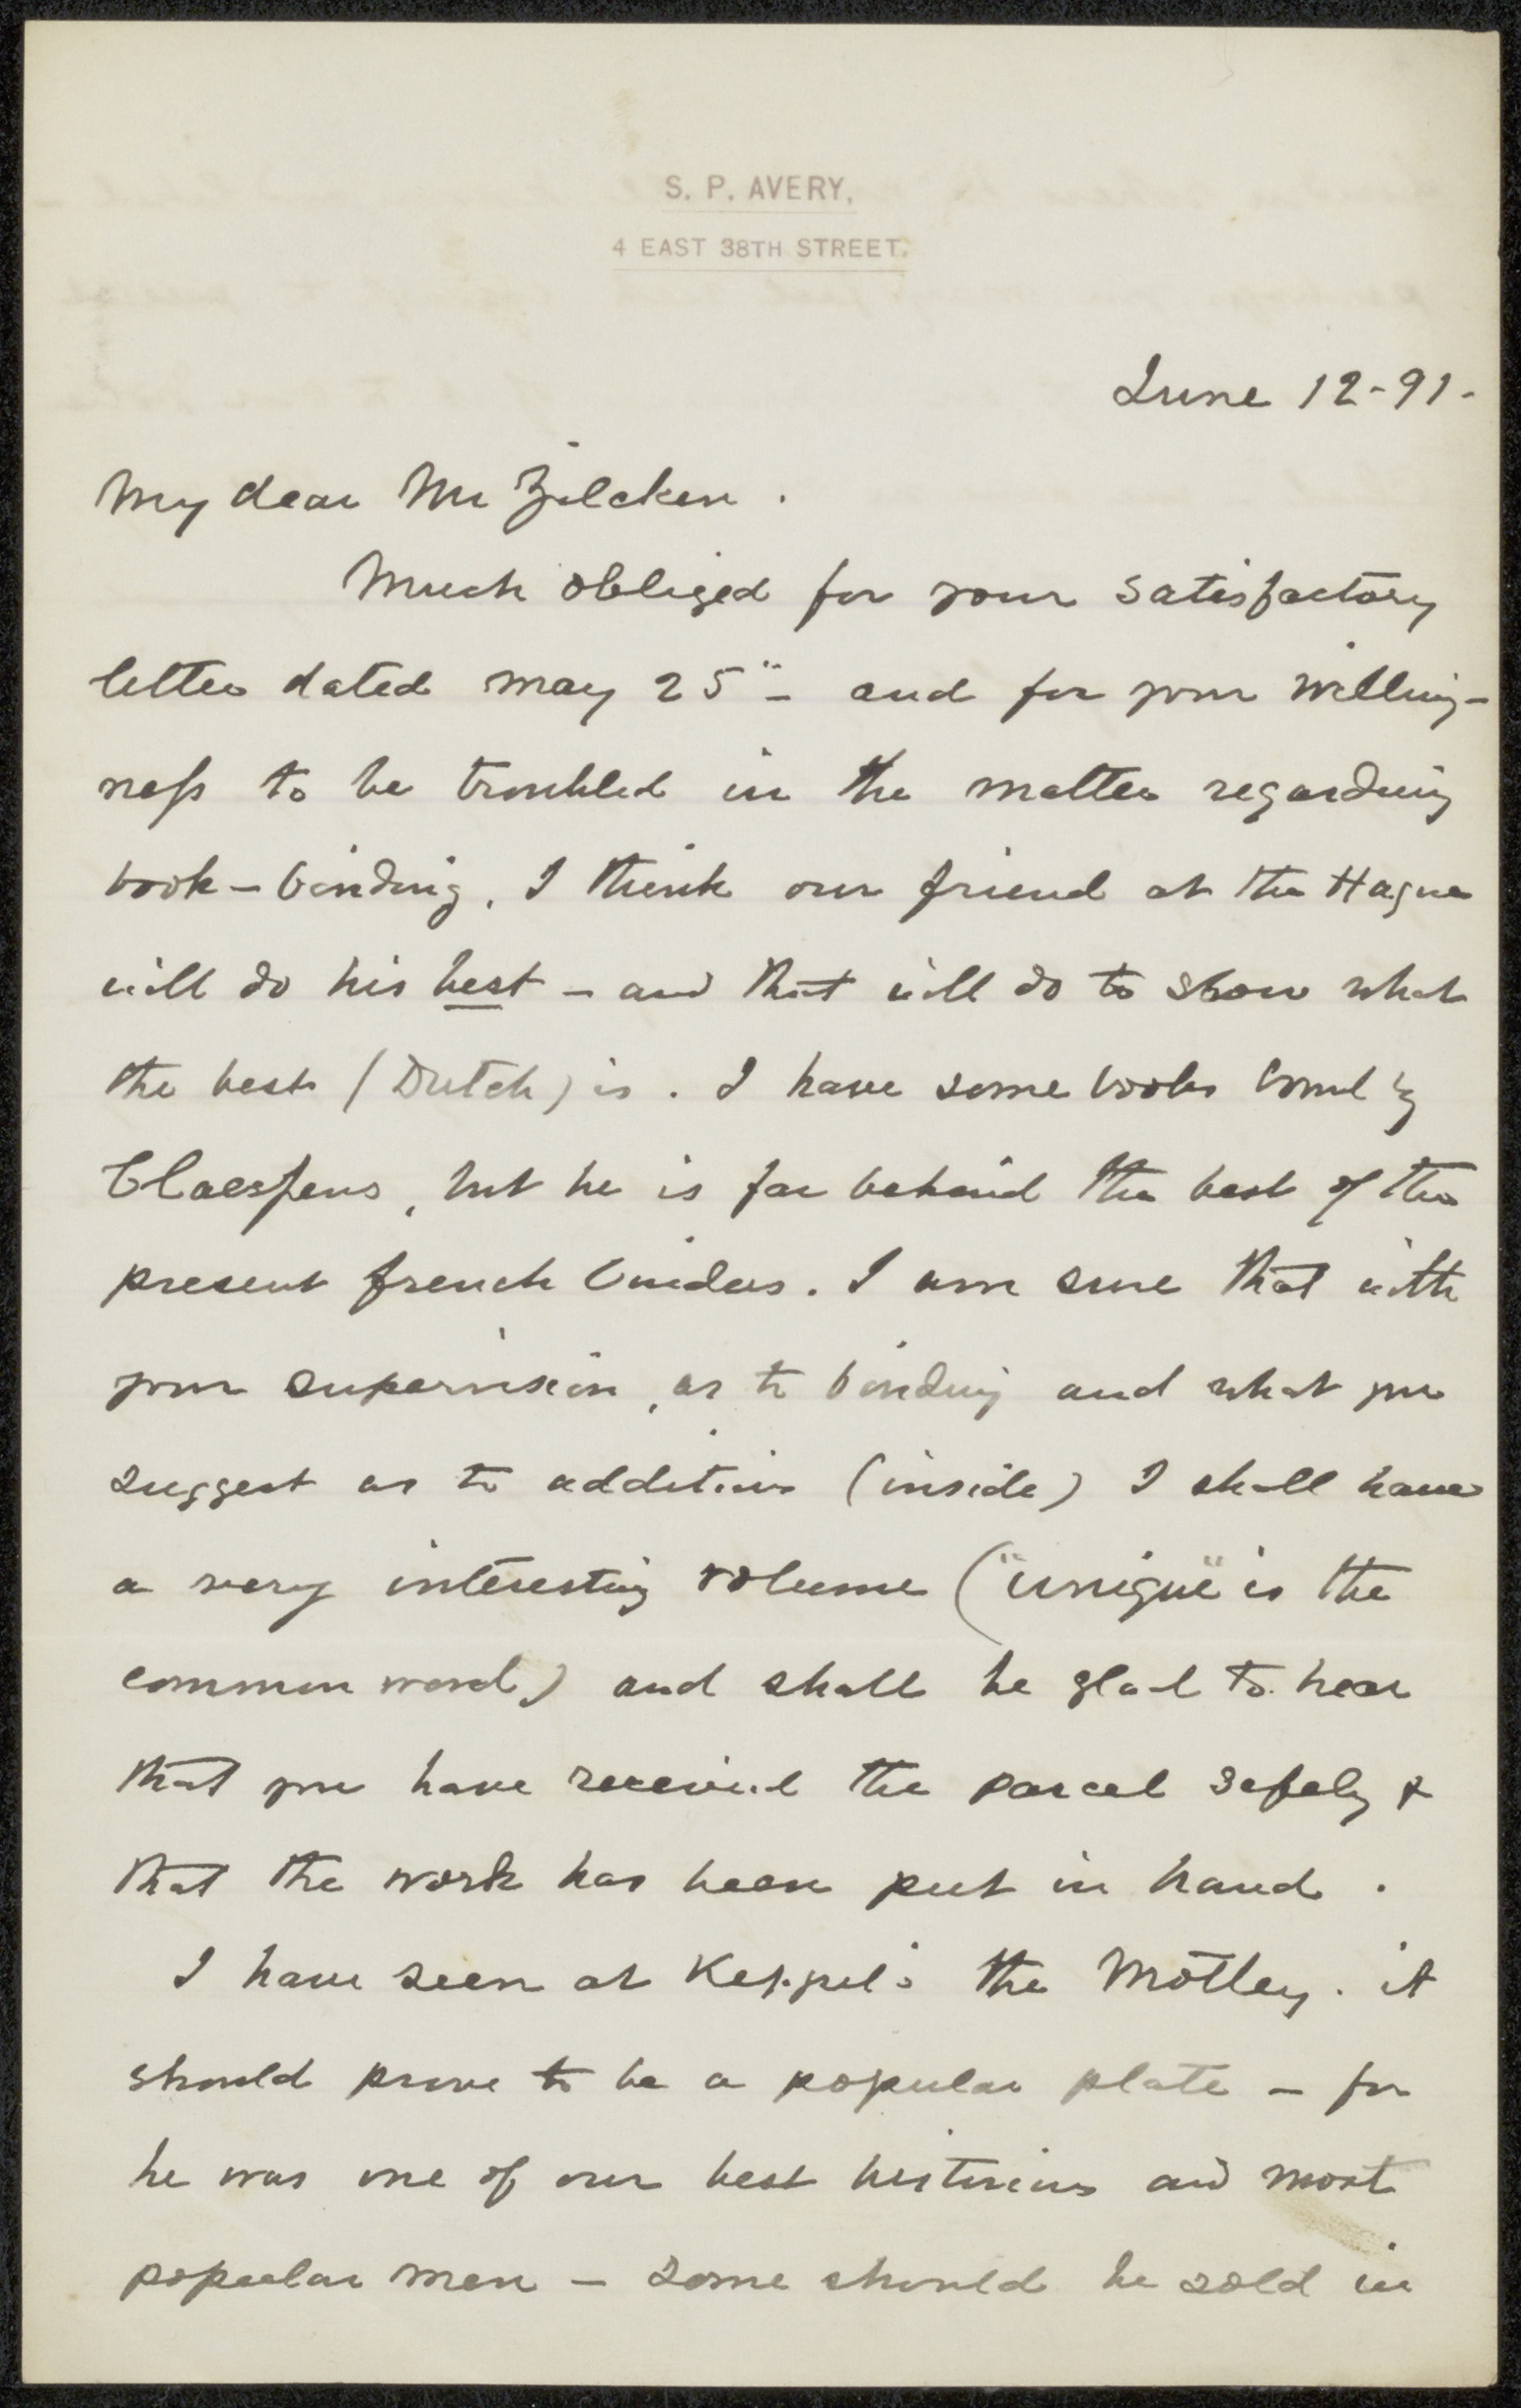 S. P. AVERY,
4 EAST 38TH STREET.
June 12-91-
My dear Mr Zilcken.
Much obliged for your satisfactory
letter dated May 25" - and for your willing-
ness to be troubled in the matter regarding
book-binding. I think our friend at the Hague
will do his best - and that will do to show what
the best (Dutch) is. I have some books bound by
Claessens, but he is far behind the best of the
present french binders. I am sure that with
your supervision, as to binding and what you
suggest as to additions (inside) I shall have
a very interesting volume ("unique" is the
common word) and shall be glad to hear
that you have received the parcel safely &
that the work has been put in hand.
I have seen at Keppel's the Motley. it
should prove to be a popular plate - for
he was one of our best historians and most
popular men - some should be sold in